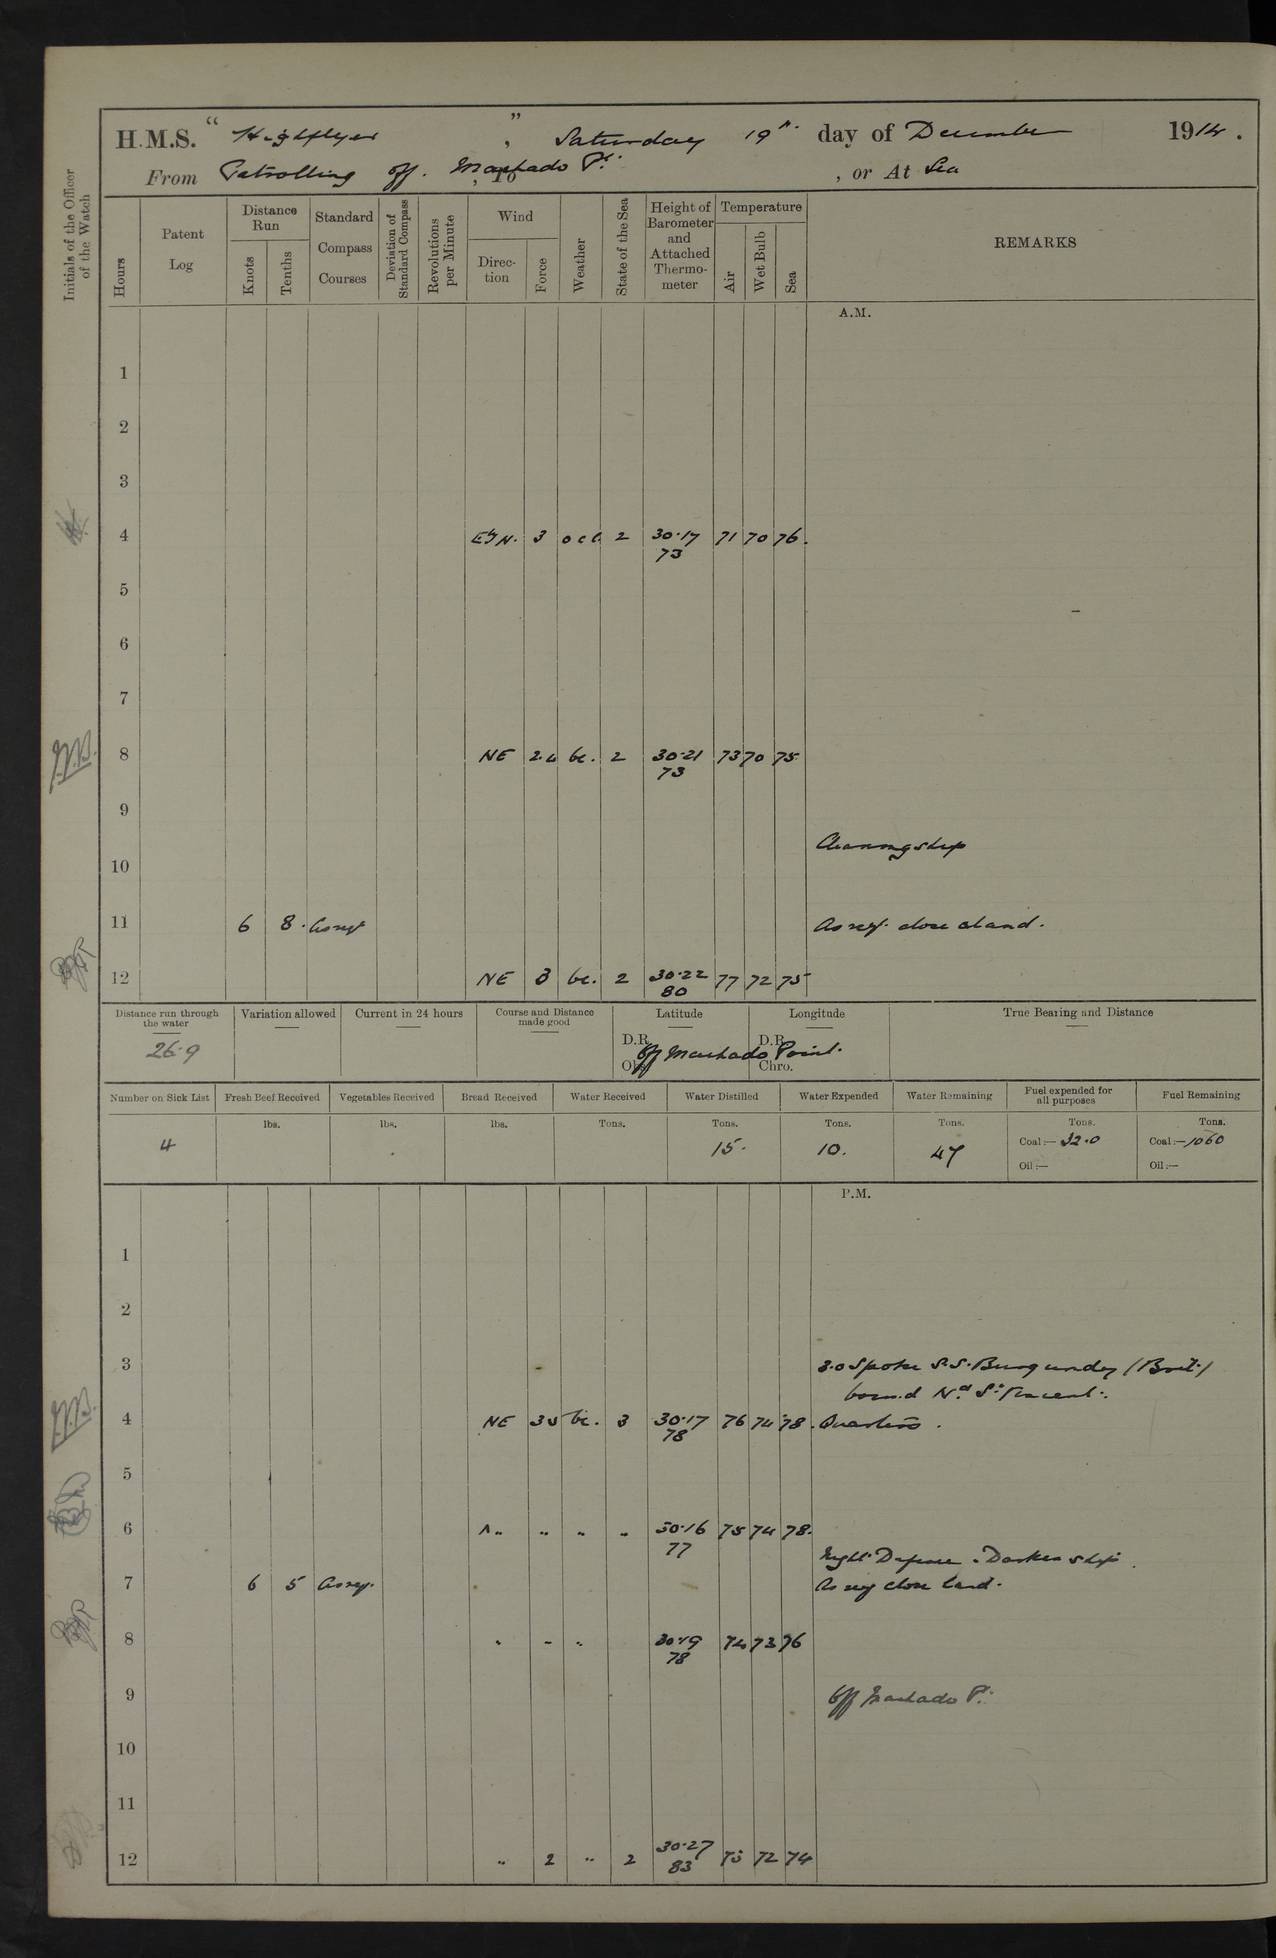 H.M.S. "Highflyer", Saturday 19th day of December 1914.
From Patrolling off. Machado Pt. , To , or At Sea
Initials of the Officer of the Watch
Hours
Patent Log
Distance Run
Knots
Tenths
Standard Compass Courses
Deviation of Standard Compass
Revolutions per Minute
Wind
Direction
Force
Weather
State of the Sea
Height of Barometer and Attached Thermometer
Temperature
Air
Wet Bulb
Sea
REMARKS
A.M.
1
2
3
4 EbyN. 3 2 30.17 71 70 76.
73
5
6
7
8 NE 2.4 bc. 2 30.21 73 70 75
73
9
Cleaning ship
10
11 6 8. As req As req. close aland.
12 NE 3 bc. 2 30.22 77 72 75
80
Distance run through the water
Variation allowed
Current in 24 hours
Course and Distance made good
Latitude
Longitude
True Bearing and Distance
26.9
D.R. D.R.
off Machado Point.
Obs. Chro.
Number on Sick List
Fresh Beef Received
Vegetables Received
Bread Received
Water Received
Water Distilled
Water Expended
Water Remaining
Fuel expended for all purposes
Fuel Remaining
lbs. lbs. lbs. Tons. Tons. Tons. Tons. Tons. Tons.
4 15. 10. 47 Coal:— 32.0 Coal:— 1060
Oil:— Oil:—
P.M.
1
2
3 3.0 Spoke S.S. Burgundy (Brit.)
bound Nd St Vincent.
4 NE 3.5 bc. 3 30.17 76 74 78. Quarters.
78
5
6 " " " " 30.16 75 74 78.
77
Night Defence. Darken ship.
7 6 5 As req. As req close land.
8 " " " 30.19 74 73 76
78
9 Off Machado Pt.
10
11
12 " 2 " 2 30.27 73 72 74
83